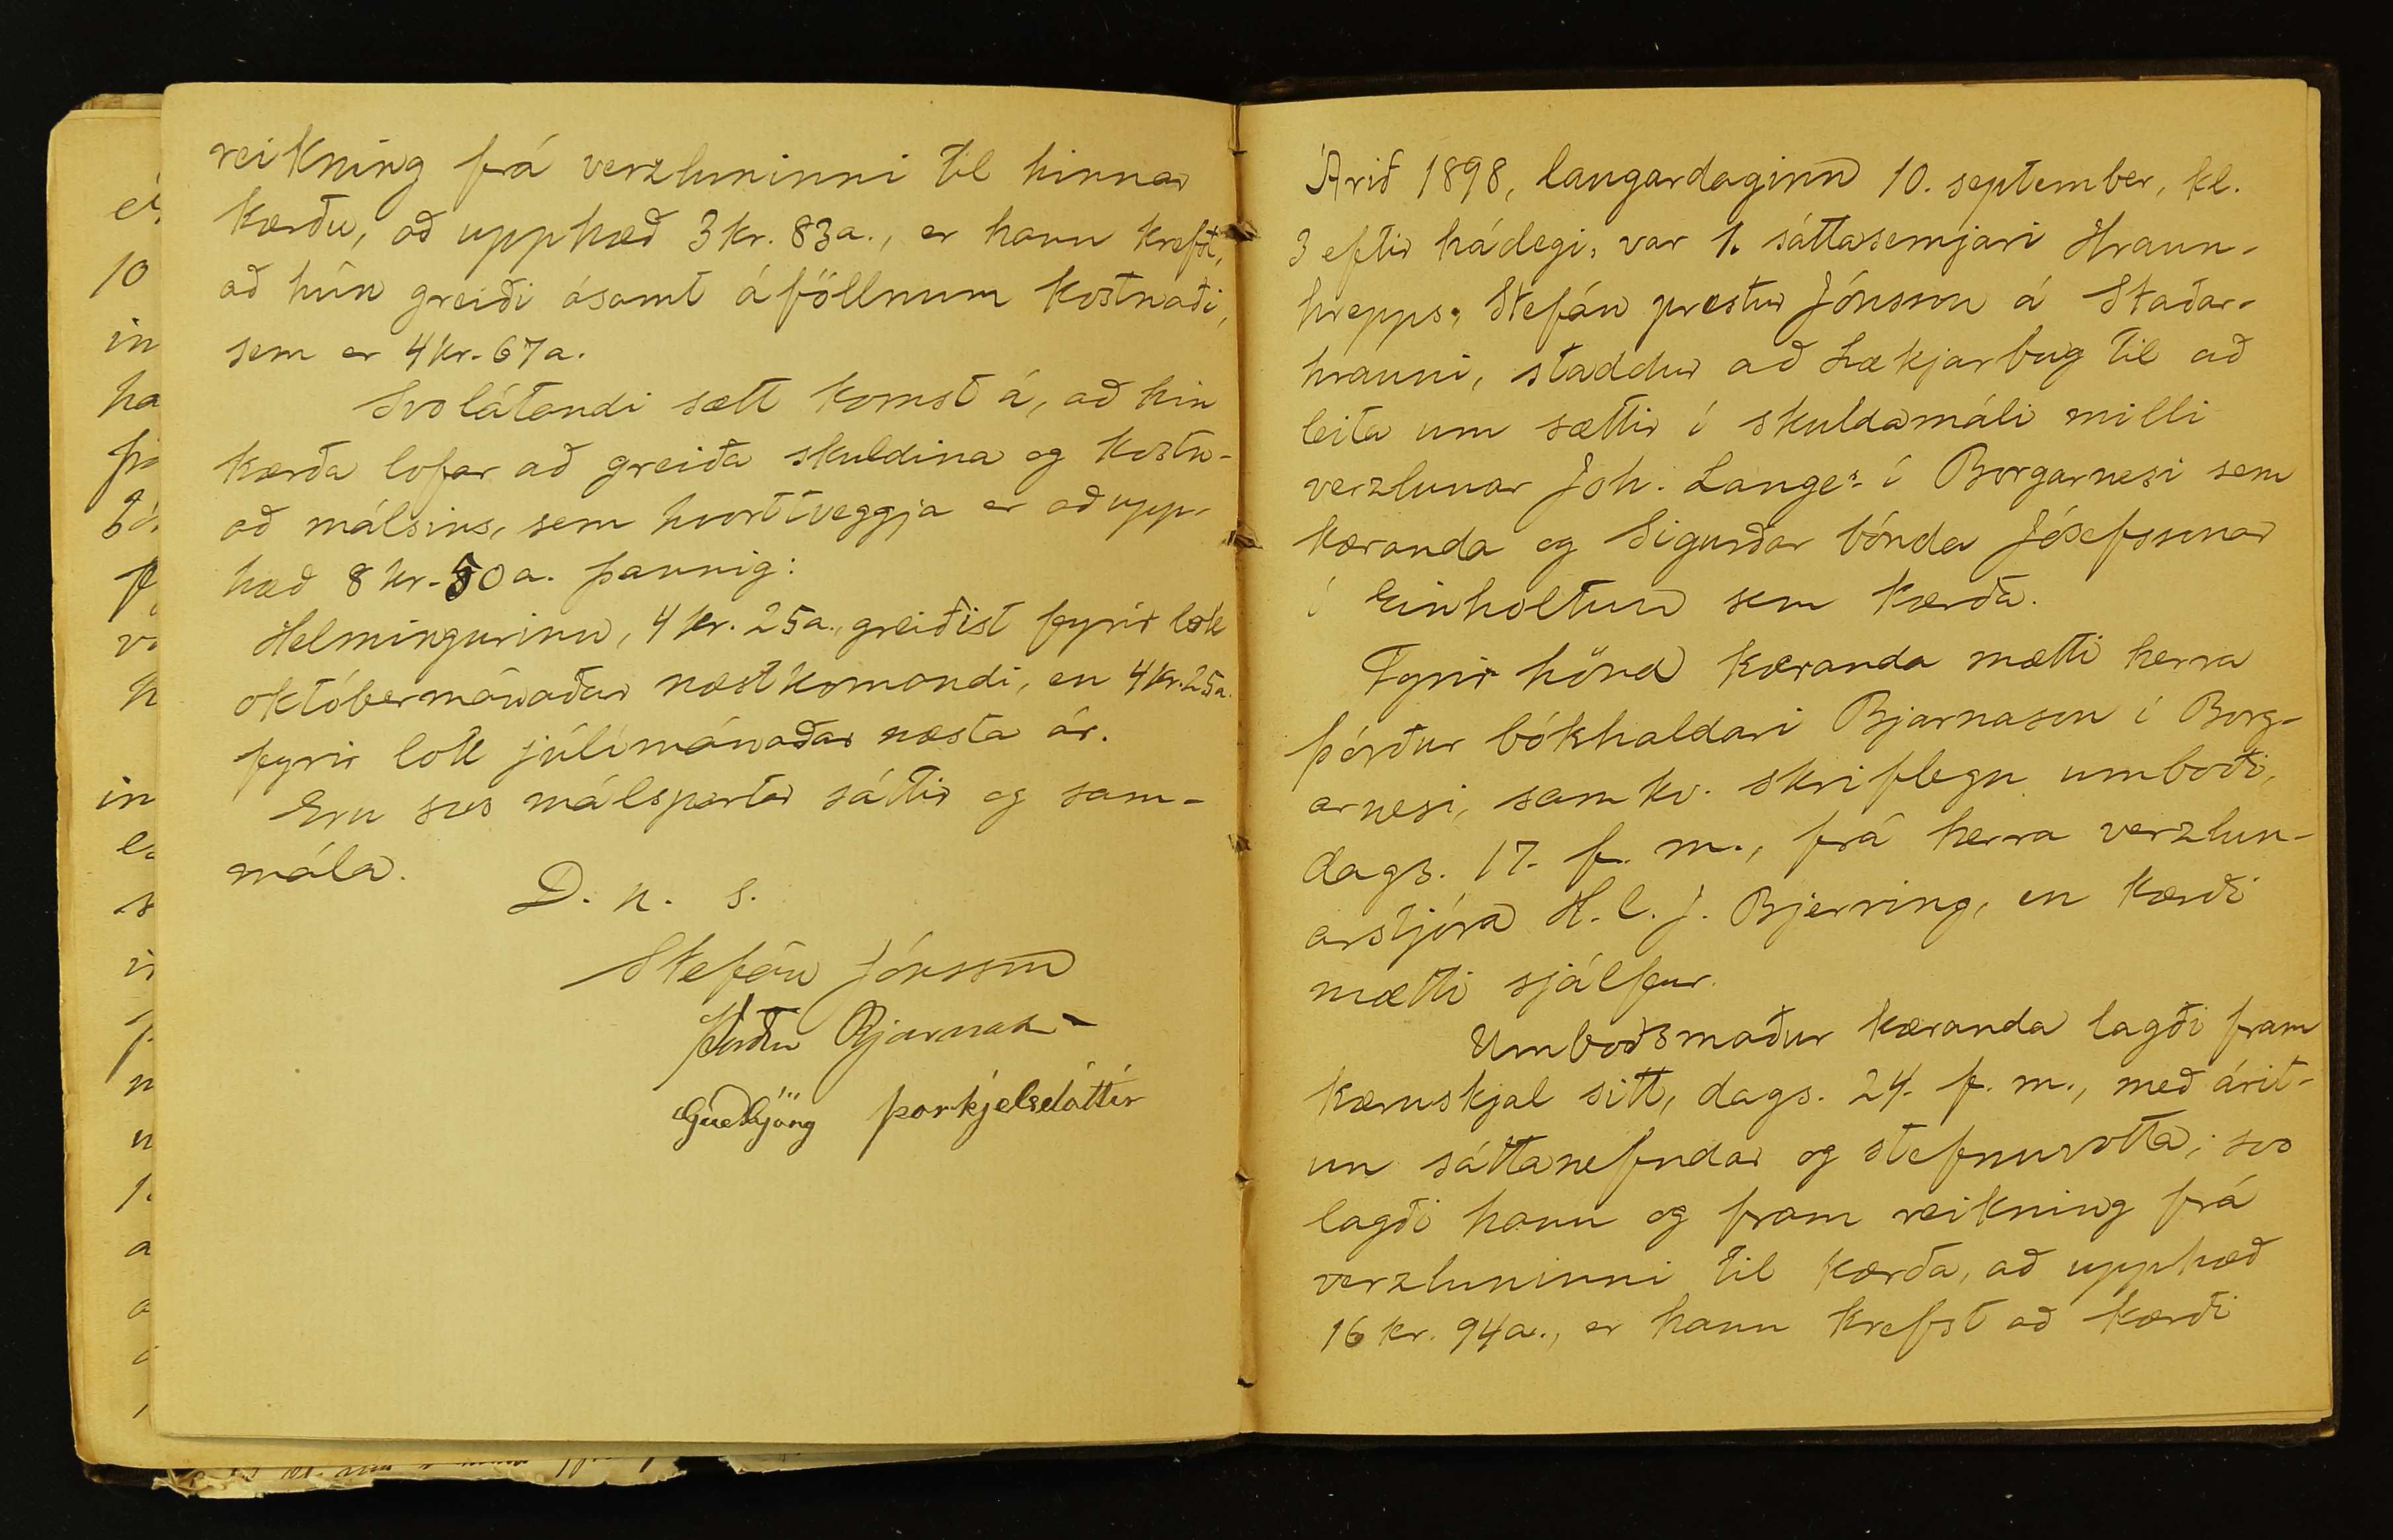 reikning frá verzluninni til hinnar
kærðu, að upphæð 3 kr. 83 a., er hann krefst,
að hún greiði ásamt áföllnum kostnaði,
sem er 4 kr. 67 a.
Svolátandi sætt komst á, að hin
kærða lofar að greiða skuldina og kostn-
að málsins, sem hvorttveggja er að upp-
hæð 8 kr. 50 a. þannig:
Helmingurinn, 4 kr. 25 a., greiðist fyrir lok
októbermánaðar næstkomandi, en 4 kr. 25 a.
fyrir lok júlímánaðar næsta ár.
Eru svo málspartar sáttir og sam-
mála.
D. u. s.
Stefán Jónsson
Þórður Bjarnason
Guðbjörg Þorkjelsdóttir
Árið 1898, laugardaginn 10. september, kl.
3 eftir hádegi, var 1. sáttasemjari Hraun-
hrepps, Stefán prestur Jónsson á Staðar-
hrauni, staddur að Lækjarbug til að
leita um sættir í skuldamáli milli
verzlunar Joh. Lange's í Borgarnesi sem
kæranda og Sigurðar bónda Jósefssonar
í Einholtum sem kærða.
Fyrir hönd kæranda mætti herra
Þórður bókhaldari Bjarnason í Borg-
arnesi, samkv. skriflegu umboði,
dags. 17. f. m., frá herra verzlun-
arstjóra H. C. J. Bjerring, en kærði
mætti sjálfur.
Umboðsmaður kæranda lagði fram
kæruskjal sitt, dags. 24. f. m., með árit-
un sáttanefndar og stefnuvotta; svo
lagði hann og fram reikning frá
verzluninni til kærða, að upphæð
16 kr. 94 a., er hann krefst að kærði